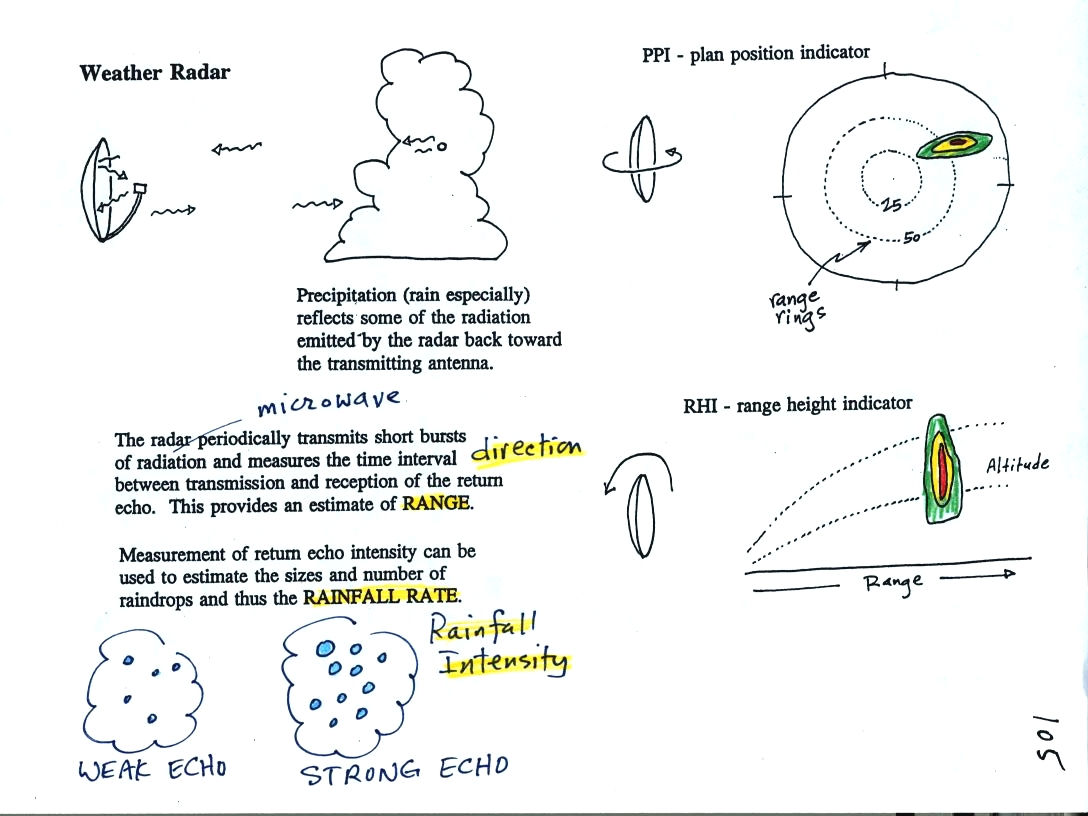 Weather Radar
Precipitation (rain especially)
reflects some of the radiation
emitted by the radar back toward
the transmitting antenna.
microwave
The radar periodically transmits short bursts
of radiation and measures the time interval
between transmission and reception of the return
echo. This provides an estimate of RANGE.
direction
Measurement of return echo intensity can be
used to estimate the sizes and number of
raindrops and thus the RAINFALL RATE.
Rainfall
Intensity
WEAK ECHO
STRONG ECHO
PPI - plan position indicator
25
50
range
rings
RHI - range height indicator
Altitude
Range
105